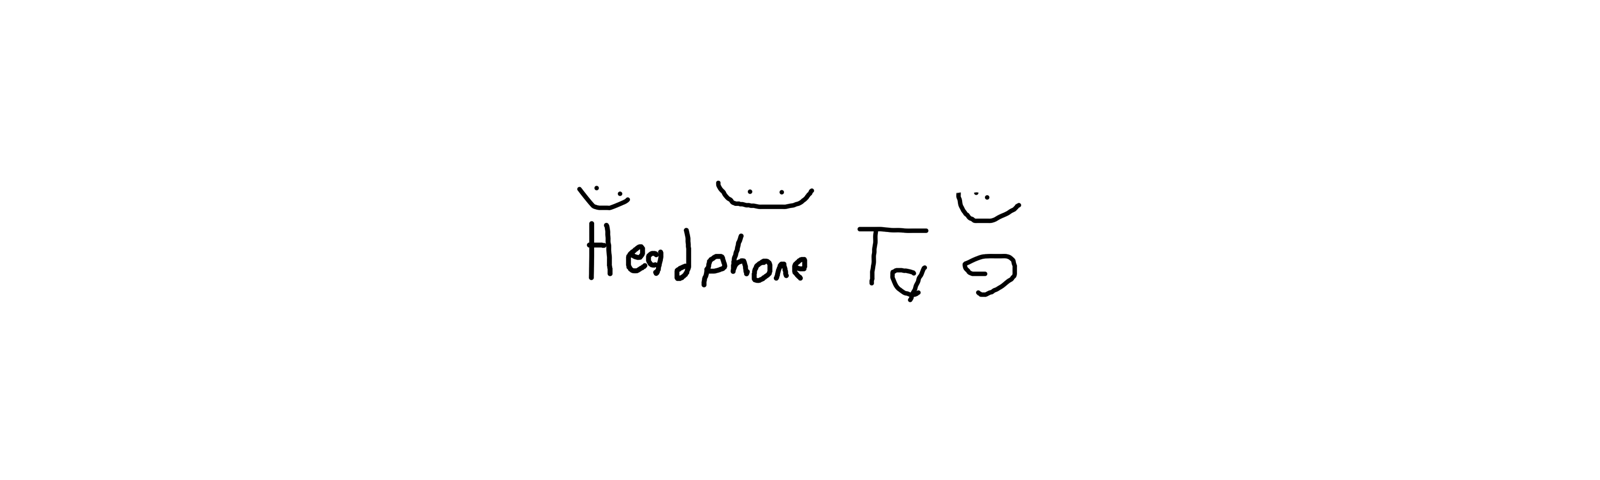 Headphone Tag